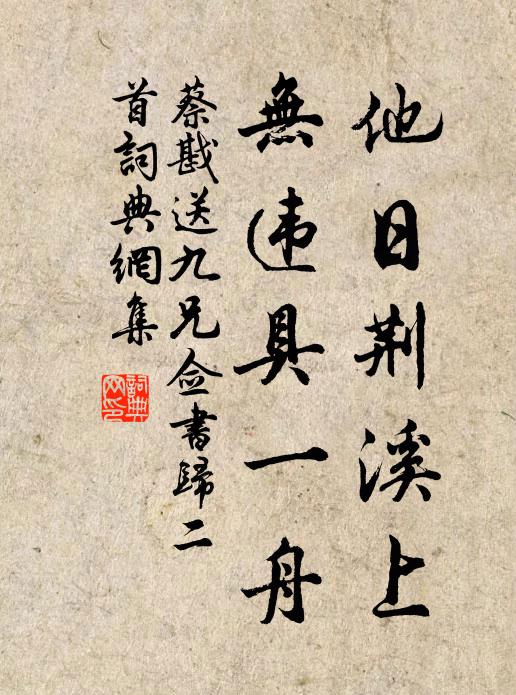 他日荆溪上
無违具一舟
蔡戡送九兄佥書歸二
首詞典網集
詞典
网印